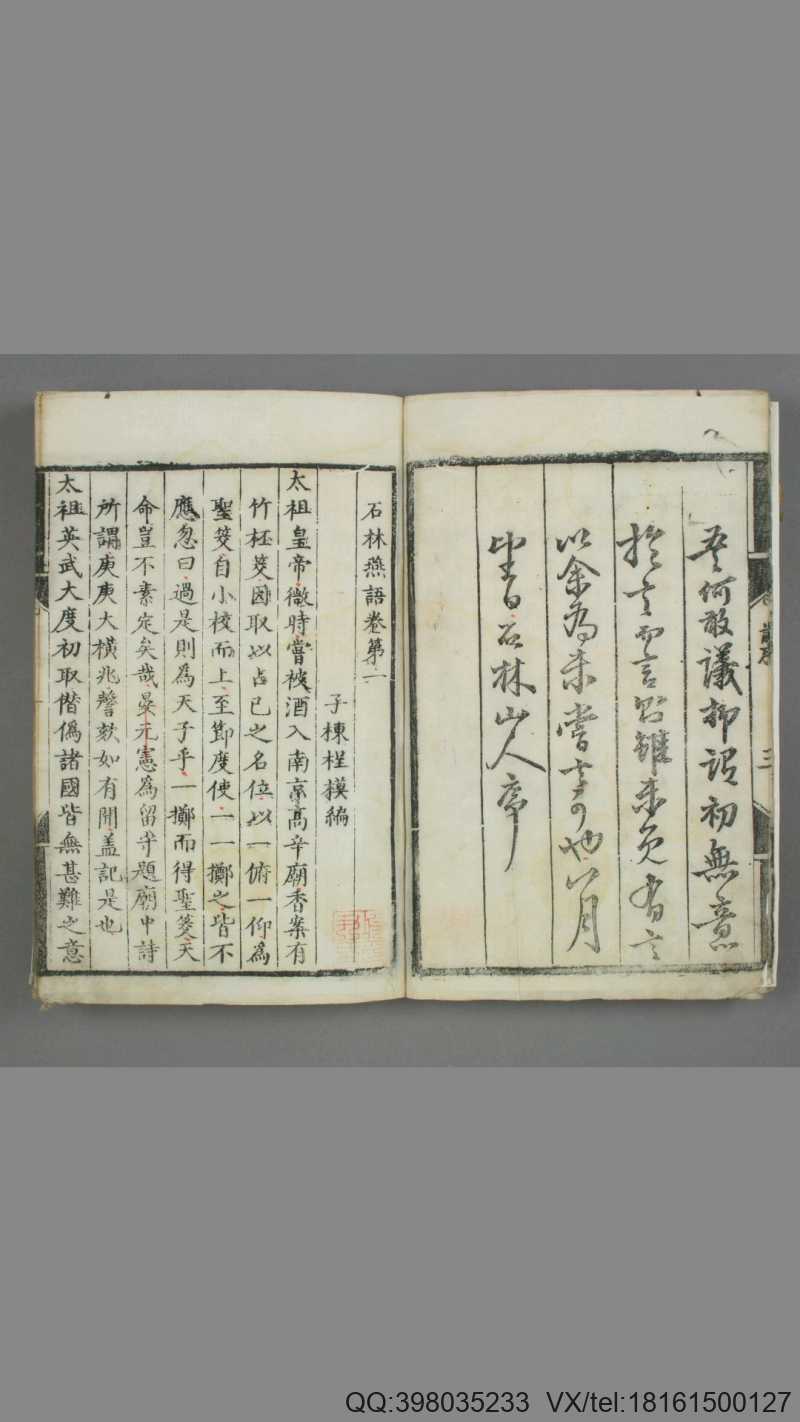 吾何敢議抑謂初無意
於言而言則雖未免有言
以余為未嘗言可也八月
望日石林山人序
三
石林燕語卷第一
子棟桯模編
太祖皇帝微時嘗被酒入南京高辛廟香案有
竹柸筊因取以占已之名位以一俯一仰為
聖筊自小校而上至節度使一一擲之皆不
應忽曰過是則為天子乎一擲而得聖筊天
命豈不素定矣哉晏元憲為留守題廟中詩
所謂庚庚大橫兆謦欬如有聞蓋記是也
太祖英武大度初取僭偽諸國皆無甚難之意
QQ:398035233 VX/tel:18161500127